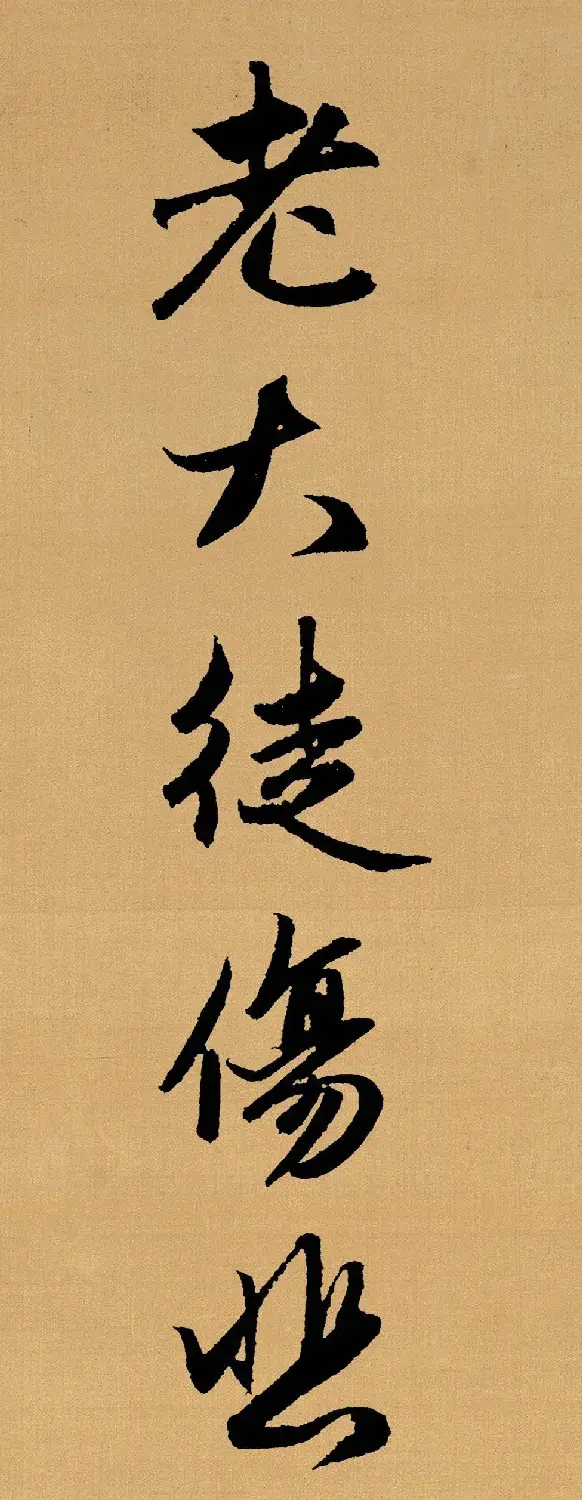 老大徒傷悲